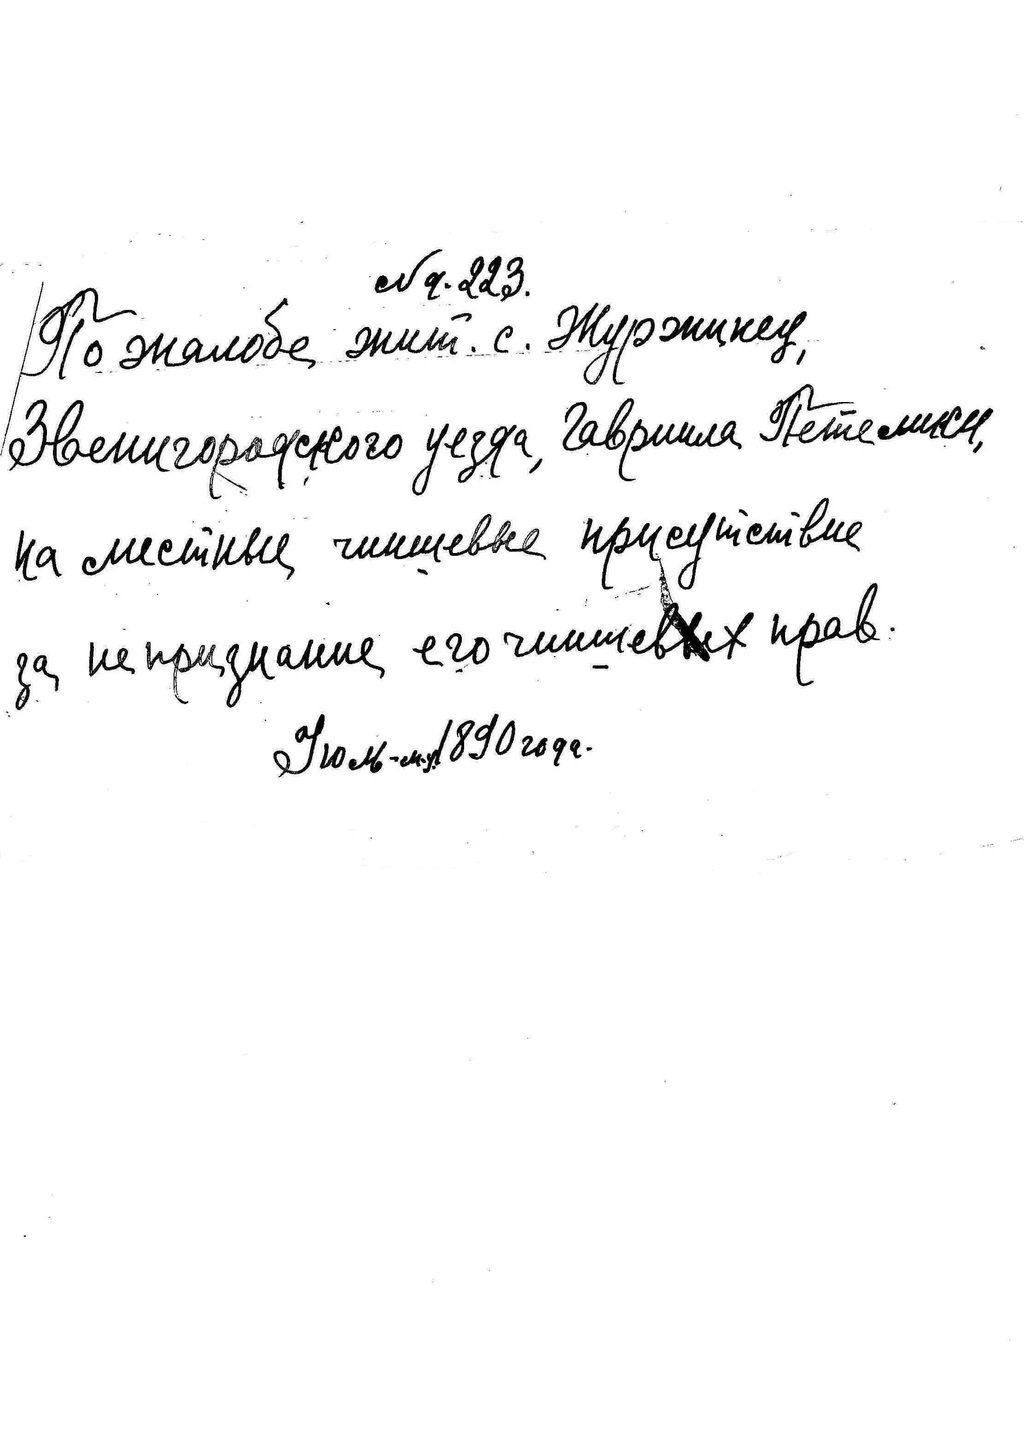 № д. 223.
По жалобе жит. с. Журжинец,
Звенигородского уезда, Гавриила Петелики,
на местные чиншевые присутствие
за непризнание его чиншевых прав.
Июль-м-ц 1890 года.